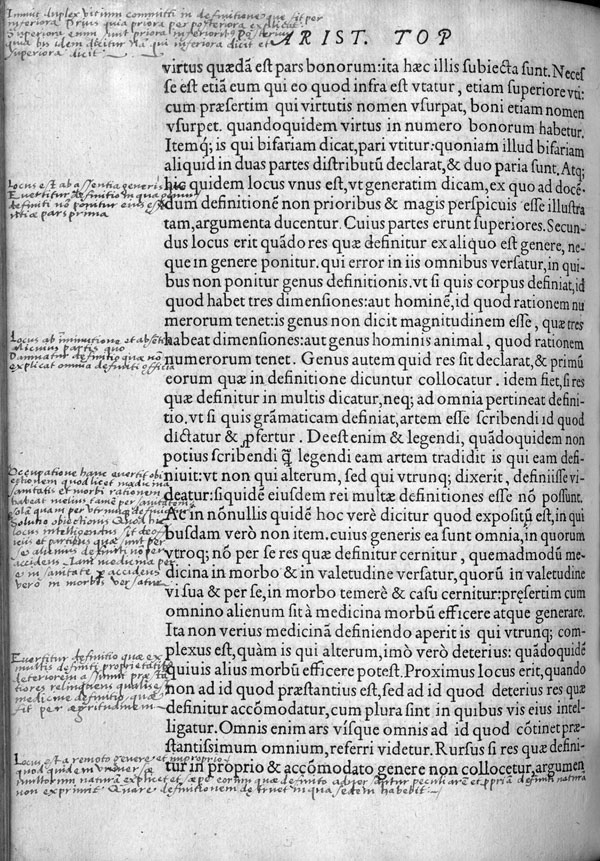 Innuit duplex vitium committi in definitione que fit per
inferiora Prius quia priora per posteriora explicat.
Superiora enim sunt priora inferioribus Posterius
quia bis idem dicitur Nam qui inferiora dicit et
superiora dicit
ARIST. TOP
virtus quædã est pars bonorum: ita hæc illis subiecta sunt. Neces
se est etiã eum qui eo quod infra est vtatur, etiam superiore vti:
cum præsertim qui virtutis nomen vsurpat, boni etiam nomen
vsurpet. quandoquidem virtus in numero bonorum habetur.
Itemq́; is qui bifariam dicat, pari vtitur: quoniam illud bifariam
aliquid in duas partes distributũ declarat, & duo paria sunt. Atq;
hic quidem locus vnus est, vt generatim dicam, ex quo ad docẽ
dum definitionẽ non prioribus & magis perspicuis esse illustra
tam, argumenta ducentur. Cuius partes erunt superiores. Secun
dus locus erit quãdo res quæ definitur ex aliquo est genere, ne-
que in genere ponitur. qui error in iis omnibus versatur, in qui-
bus non ponitur genus definitionis. vt si quis corpus definiat, id
quod habet tres dimensiones: aut hominẽ, id quod rationem nu
merorum tenet: is genus non dicit magnitudinem esse, quæ tres
habeat dimensiones: aut genus hominis animal, quod rationem
numerorum tenet. Genus autem quid res sit declarat, & primũ
eorum quæ in definitione dicuntur collocatur. idem fiet, si res
quæ definitur in multis dicatur, neq; ad omnia pertineat defini-
tio. vt si quis grãmaticam definiat, artem esse scribendi id quod
dictatur & ꝓfertur. Deest enim & legendi, quãdoquidem non
potius scribendi q̃ legendi eam artem tradidit is qui eam defi-
niuit: vt non qui alterum, sed qui vtrunq; dixerit, definiisse vi-
deatur: siquidẽ eiusdem rei multæ definitiones esse nõ possunt.
Ac in nõnullis quidẽ hoc verè dicitur quod expositũ est, in qui
busdam verò non item. cuius generis ea sunt omnia, in quorum
vtroq; nõ per se res quæ definitur cernitur, quemadmodũ me-
dicina in morbo & in valetudine versatur, quorũ in valetudine
vi sua & per se, in morbo temerè & casu cernitur: pręsertim cum
omnino alienum sit à medicina morbũ efficere atque generare.
Ita non verius medicinã definiendo aperit is qui vtrunq; com-
plexus est, quàm is qui alterum, imò verò deterius: quãdoquidẽ
quiuis alius morbũ efficere potest. Proximus locus erit, quando
non ad id quod præstantius est, sed ad id quod deterius res quæ
definitur accõmodatur, cum plura sint in quibus vis eius intel-
ligatur. Omnis enim ars vísque omnis ad id quod cõtinet præ-
stantissimum omnium, referri videtur. Rursus si res quæ defini-
tur in proprio & accõmodato genere non collocetur, argumen
Locus est ab assentia generis
Evertitur definitio in qua
definiti nõ ponitur eius
pars prima
Locus ab
alicuius partis quo
Damnatur definitio quae nõ
explicat omnia definiti officia
Occupatione hanc evertit obi
ectionem quod licet medicina
sanitatis et morbi rationem
habeat melius tamẽ per sanitatem
solã quam per vtrunq; definitur
Solutio obiectionis Quod hic
locus intelligendus sit de offi
ciis et partibus quae sint per
se alicuius definiti nõ per
accidens. Nam medicina per
se in sanitate per accidens
verò in morbis versatur
Evertitur definitio quae ex
multis definiti proprietatibus
deteriorem assumit præstã
tiores relinquens qualis
medicine definitio quae
fit per aegritudinem
Locus est a remoto genere et improprio
quod quidem
multorum naturã explicet et saepe eorum quae definito
non exprimit Quare definitionem destruet in qua sedem habebit